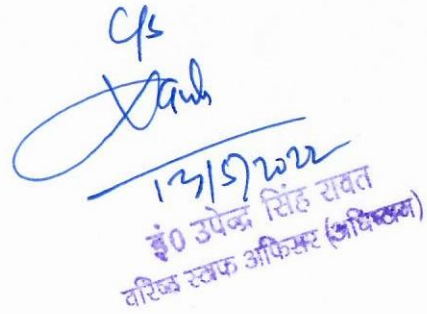 C/s
13/5/2022
इं0 उपेन्द्र सिंह रावत
वरिष्ठ स्टाफ अफिसर (अधिष्ठान)